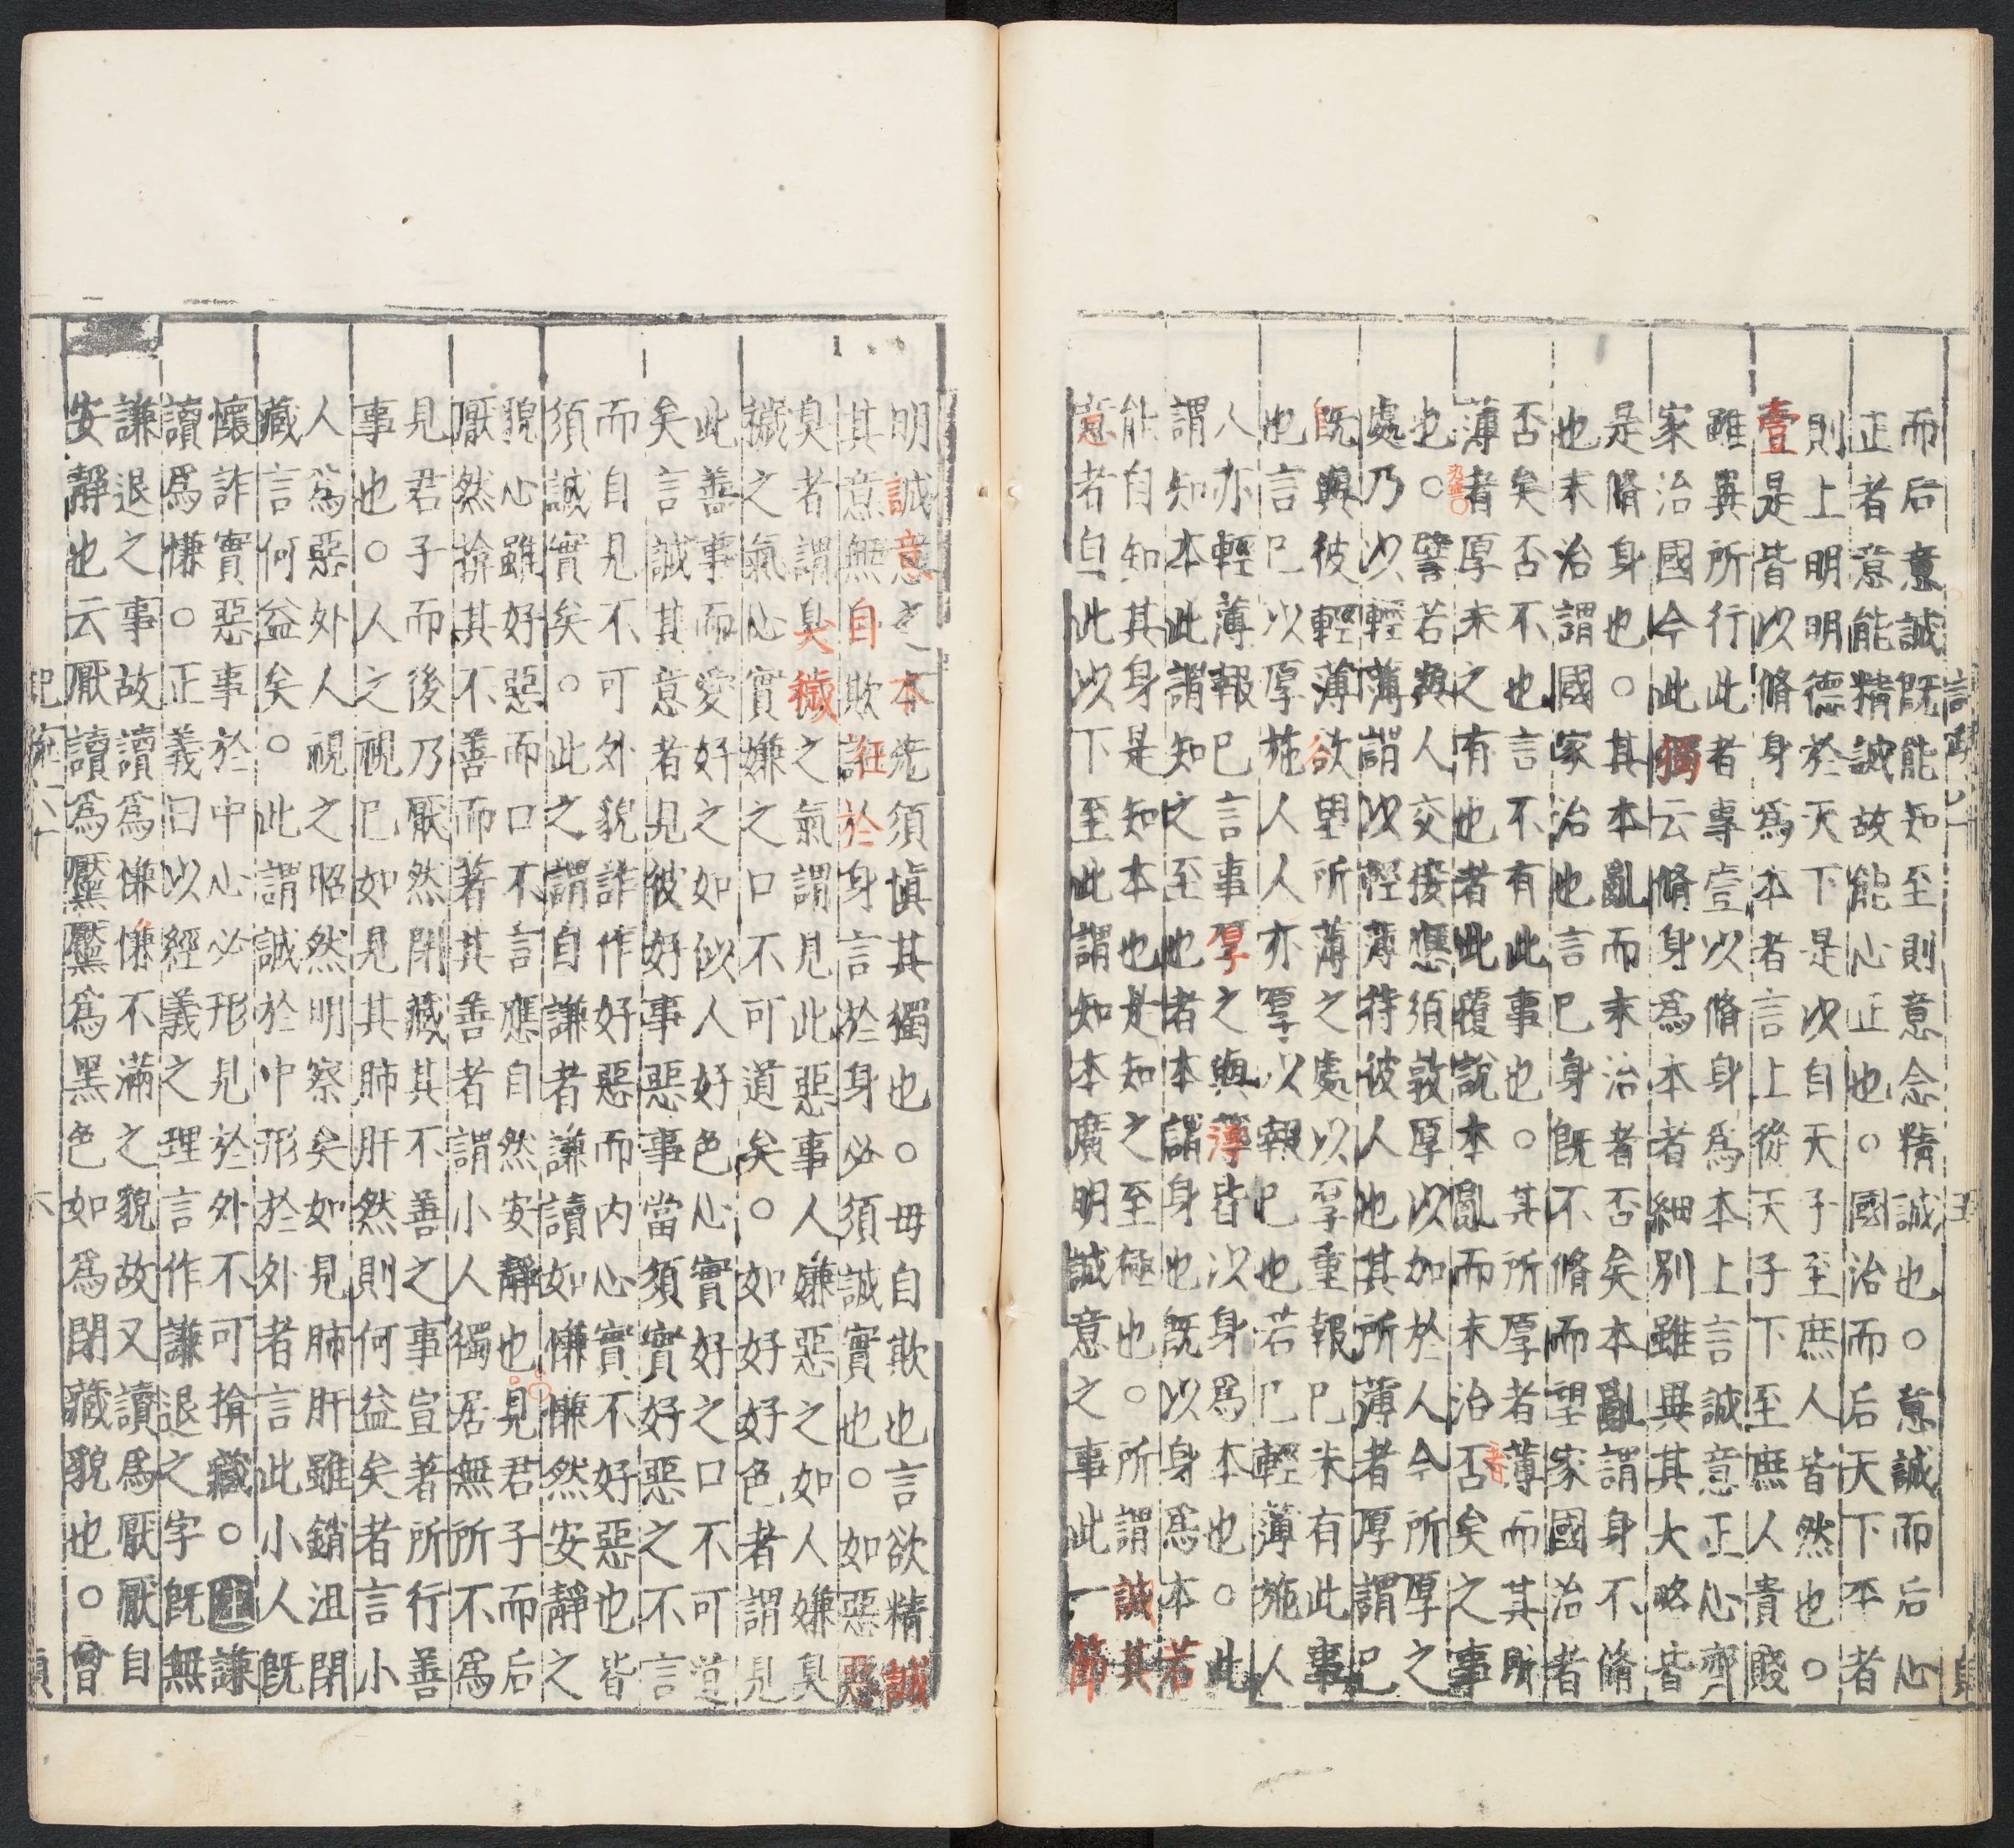 而后意誠既能知至則意念精誠也○意誠而后心
正者意能精誠故能心正也○國治而后天下平者
則上明明德於天下是以自天子至庶人皆然也○
壹是皆以脩身爲本者言上從天子下至庶人貴賤
雖異所行此者專壹以脩身爲本上言誠意正心齊
家治國今此獨云脩身爲本者細別雖異其大略皆
是脩身也○其本亂而末治者否矣本亂謂身不脩
也末治謂國家治也言己身既不脩而望家國治者
否矣否不也言不有此事也○其所厚者薄而其所
薄者厚未之有也者此覆說本亂而末治否矣之事
也○譬若與人交接應須敦厚以加於人今所厚之
處乃以輕薄謂以輕薄待彼人也其所薄者厚謂己
既與彼輕薄欲望所薄之處以厚重報己未有此事
也言己以厚施人人亦厚以報己也若己輕薄施人
人亦輕薄報己言事厚之與薄皆以身爲本也○此
謂知本此謂知之至也者本謂身也既以身爲本若
能自知其身是知本也是知之至極也○所謂誠其
意者自此以下至此謂知本廣明誠意之事此一節
明誠意之本先須愼其獨也○毋自欺也言欲精誠
其意無自欺誑於身言於身必須誠實也○如惡惡
臭者謂臭穢之氣謂見此惡事人嫌惡之如人嫌臭
穢之氣心實嫌之口不可道矣○如好好色者謂見
此善事而愛好之如似人好色心實好之口不可道
矣言誠其意者見彼好事惡事當須實好惡之不言
而自見不可外貌詐作好惡而內心實不好惡也皆
須誠實矣○此之謂自謙者謙讀如慊慊然安靜之
貌心雖好惡而口不言應自然安靜也見君子而后
厭然揜其不善而著其善者謂小人獨居無所不爲
見君子而後乃厭然閉藏其不善之事宣著所行善
事也○人之視己如見其肺肝然則何益矣者言小
人爲惡外人視之昭然明察矣如見肺肝雖銷沮閉
藏言何益矣○此謂誠於中形於外者言此小人既
懷詐實惡事於中心必形見於外不可揜藏○謙
讀爲慊○正義曰以經義之理言作謙退之字既無
謙退之事故讀爲慊慊不滿之貌故又讀爲厭厭自
安靜也云厭讀爲黶黶爲黑色如爲閉藏貌也○曾